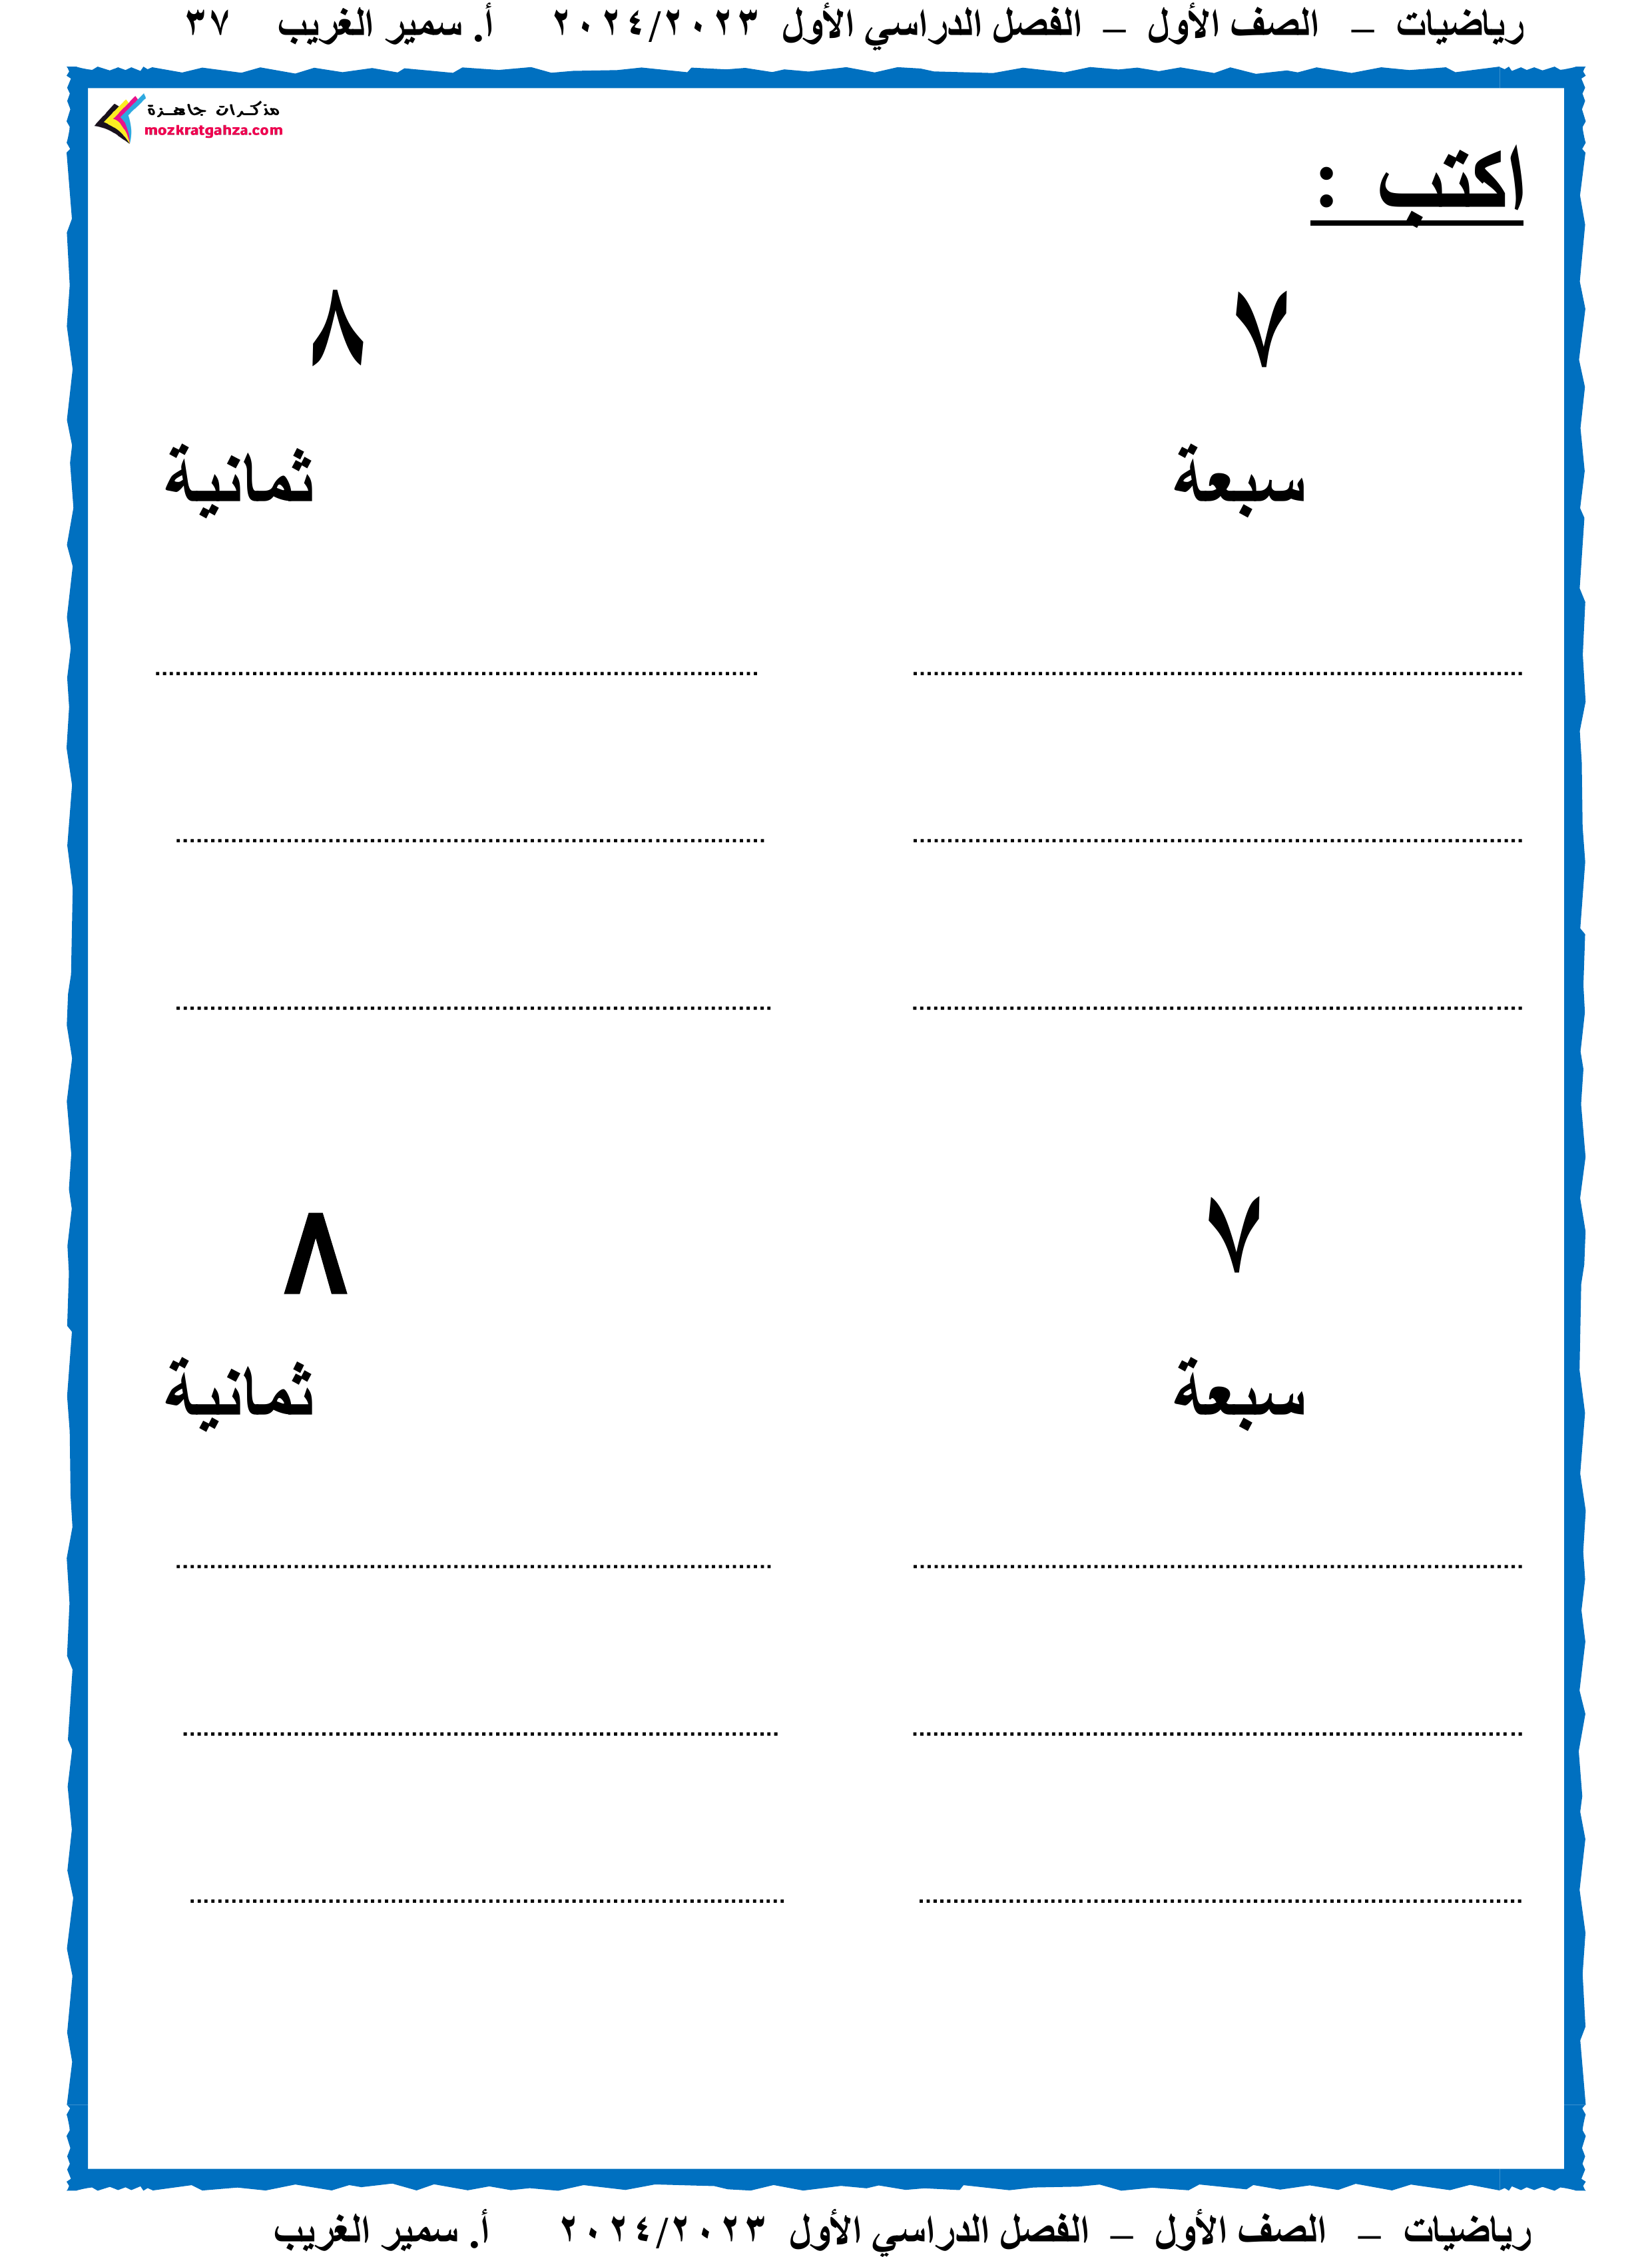 رياضيات – الصف الأول – الفصل الدراسي الأول ٢٠٢٤/٢٠٢٣ أ. سمير الغريب ٣٧
مذكرات جاهزة
mozkratgahza.com
اكتب :
٧ ٨
سبعة ثمانية
................................................ ................................................
................................................ ................................................
................................................ ................................................
٧ ٨
سبعة ثمانية
................................................ ................................................
................................................ ................................................
................................................ ................................................
رياضيات – الصف الأول – الفصل الدراسي الأول ٢٠٢٤/٢٠٢٣ أ. سمير الغريب